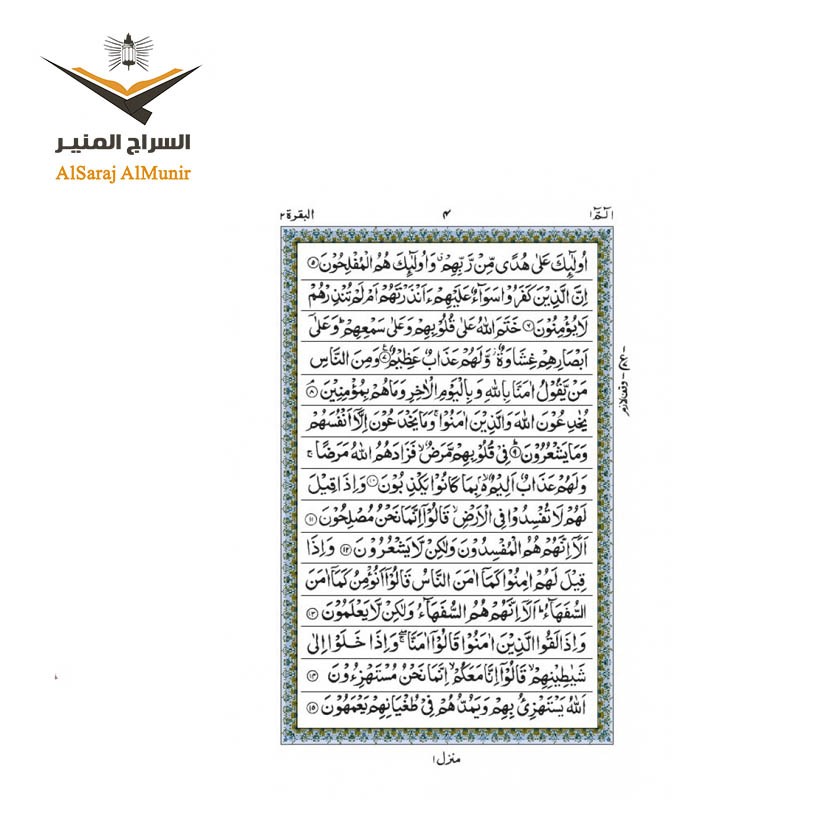 السراج المنير
AlSaraj AlMunir
البقرة ٢
۴
الٓمّٓ ١
اُولٰٓئِكَ عَلٰی هُدًی مِّنْ رَّبِّهِمْ ۙ وَاُولٰٓئِكَ هُمُ الْمُفْلِحُوْنَ ۝۵
اِنَّ الَّذِیْنَ كَفَرُوْا سَوَآءٌ عَلَیْهِمْ ءَاَنْذَرْتَهُمْ اَمْ لَمْ تُنْذِرْهُمْ
لَا یُؤْمِنُوْنَ ۝۶ خَتَمَ اللّٰهُ عَلٰی قُلُوْبِهِمْ وَعَلٰی سَمْعِهِمْ ؕ وَعَلٰۤی
اَبْصَارِهِمْ غِشَاوَةٌ ؗ وَّلَهُمْ عَذَابٌ عَظِیْمٌ ۝۷ وَمِنَ النَّاسِ
مَنْ یَّقُوْلُ اٰمَنَّا بِاللّٰهِ وَبِالْیَوْمِ الْاٰخِرِ وَمَا هُمْ بِمُؤْمِنِیْنَ ۝۸
یُخٰدِعُوْنَ اللّٰهَ وَالَّذِیْنَ اٰمَنُوْا ۚ وَمَا یَخْدَعُوْنَ اِلَّاۤ اَنْفُسَهُمْ
وَمَا یَشْعُرُوْنَ ۝۹ فِیْ قُلُوْبِهِمْ مَّرَضٌ ۙ فَزَادَهُمُ اللّٰهُ مَرَضًا ۚ
وَلَهُمْ عَذَابٌ اَلِیْمٌ ۙ بِمَا كَانُوْا یَكْذِبُوْنَ ۝۱۰ وَاِذَا قِیْلَ
لَهُمْ لَا تُفْسِدُوْا فِی الْاَرْضِ ۙ قَالُوْۤا اِنَّمَا نَحْنُ مُصْلِحُوْنَ ۝۱۱
اَلَاۤ اِنَّهُمْ هُمُ الْمُفْسِدُوْنَ وَلٰكِنْ لَّا یَشْعُرُوْنَ ۝۱۲ وَاِذَا
قِیْلَ لَهُمْ اٰمِنُوْا كَمَاۤ اٰمَنَ النَّاسُ قَالُوْۤا اَنُؤْمِنُ كَمَاۤ اٰمَنَ
السُّفَهَآءُ ؕ اَلَاۤ اِنَّهُمْ هُمُ السُّفَهَآءُ وَلٰكِنْ لَّا یَعْلَمُوْنَ ۝۱۳
وَاِذَا لَقُوا الَّذِیْنَ اٰمَنُوْا قَالُوْۤا اٰمَنَّا ۖۚ وَاِذَا خَلَوْا اِلٰی
شَیٰطِیْنِهِمْ ۙ قَالُوْۤا اِنَّا مَعَكُمْ ۙ اِنَّمَا نَحْنُ مُسْتَهْزِءُوْنَ ۝۱۴
اَللّٰهُ یَسْتَهْزِئُ بِهِمْ وَیَمُدُّهُمْ فِیْ طُغْیَانِهِمْ یَعْمَهُوْنَ ۝۱۵
منزل ١